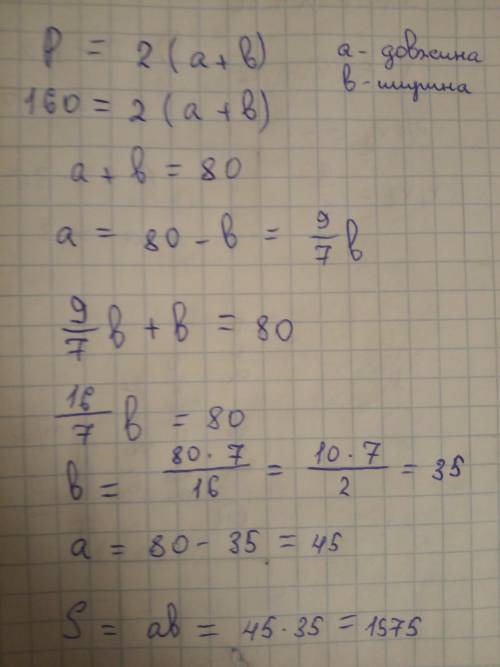 P = 2(a+b)
a - довжина
b - ширина
160 = 2(a+b)
a + b = 80
a = 80 - b = 9/7 b
9/7 b + b = 80
16/7 b = 80
b = 80·7/16 = 10·7/2 = 35
a = 80 - 35 = 45
S = ab = 45·35 = 1575